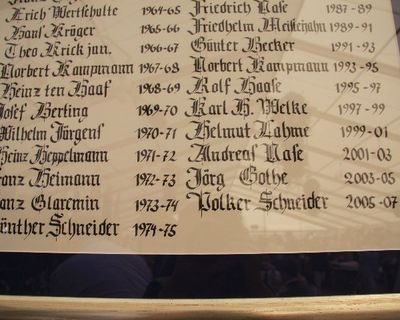 Erich Wertschulte 1964-65
Hans Krüger 1965-66
Theo Krick jun. 1966-67
Norbert Kampmann 1967-68
Heinz ten Haaf 1968-69
Josef Berting 1969-70
Wilhelm Jörgens 1970-71
Heinz Heppelmann 1971-72
Franz Heimann 1972-73
1973-74
Günther Schneider 1974-75
Friedrich Nase 1987-89
Friedhelm 1989-91
Günter Becker 1991-93
Norbert Kampmann 1993-95
Rolf Haase 1995-97
Karl H. Welke 1997-99
Helmut Lahme 1999-01
Andreas Nase 2001-03
Jörg Gothe 2003-05
Volker Schneider 2005-07